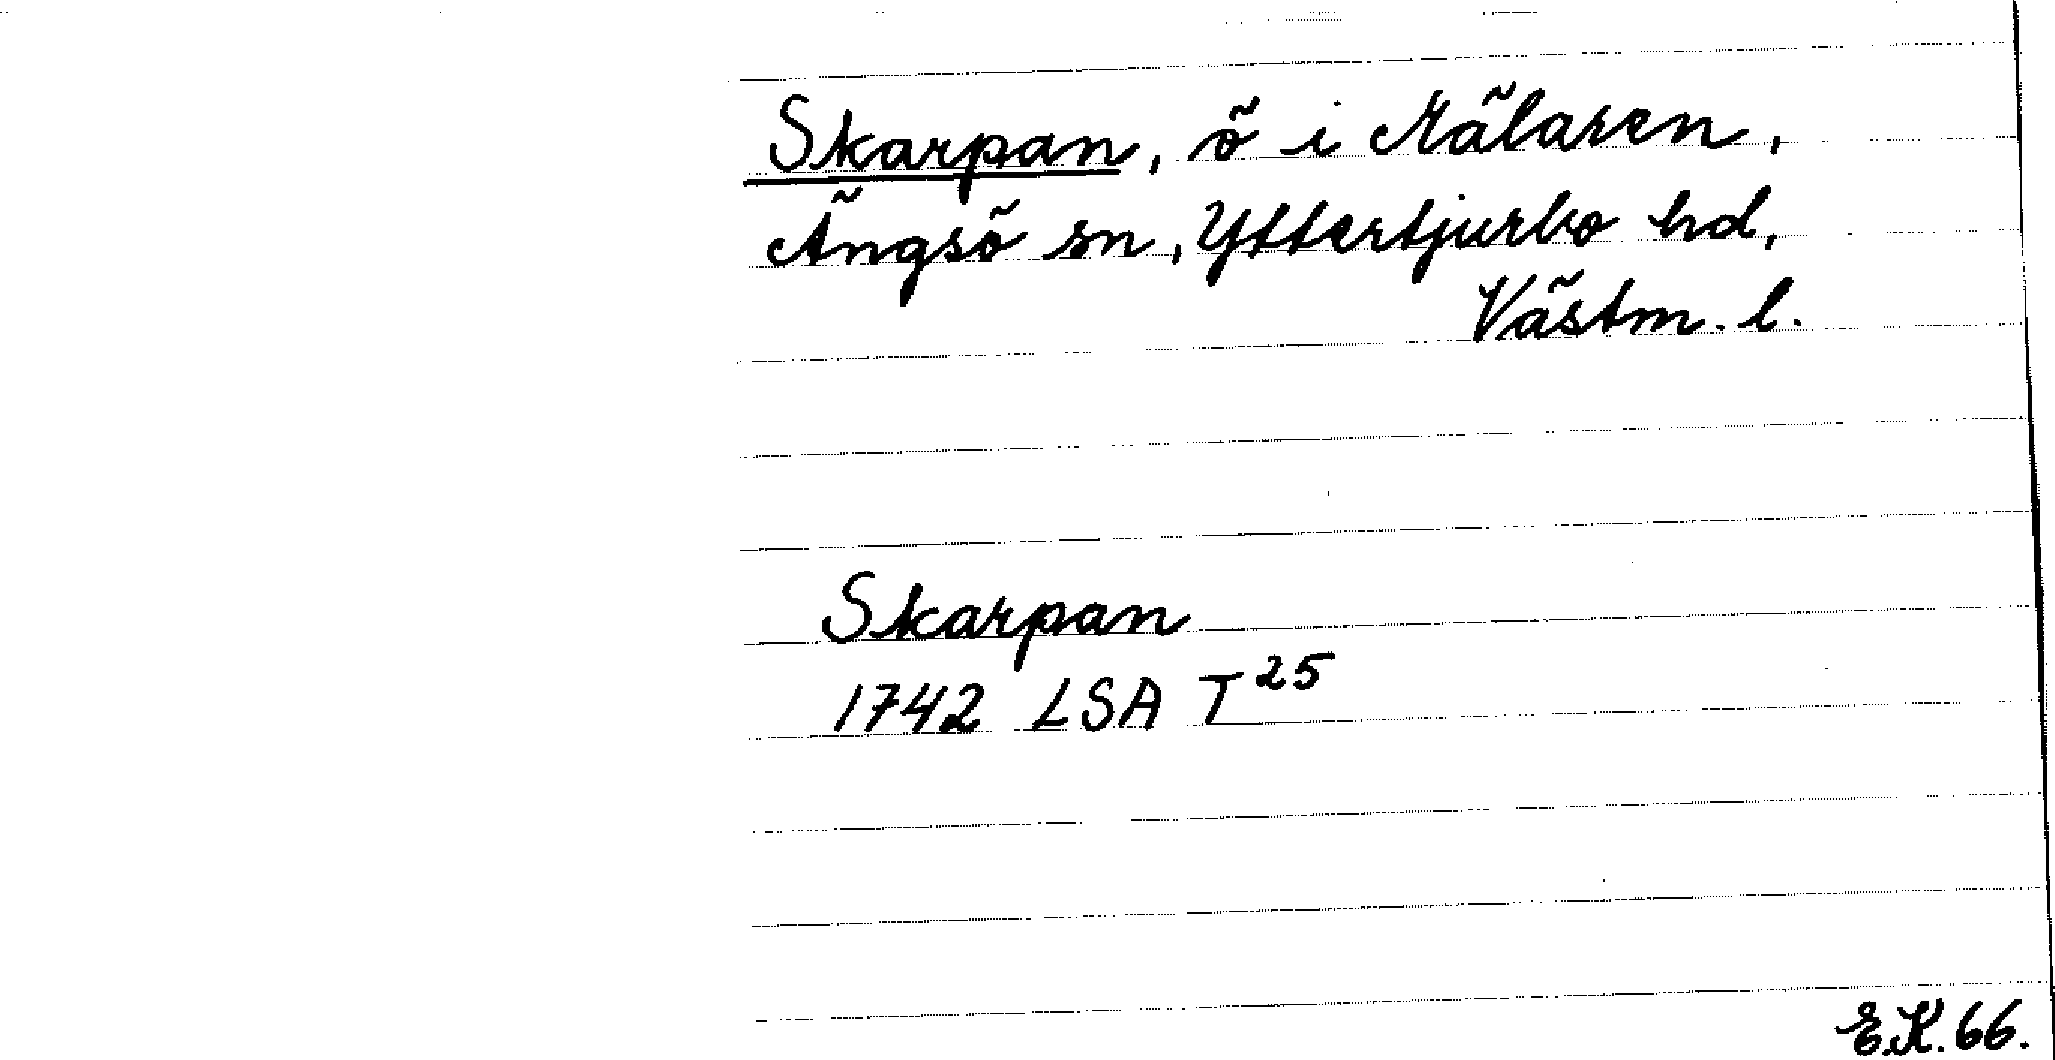 Skarpan, ö i Mälaren,
Ängsö sn, Yttertjurbo hd,
Västm. l.
Skarpan
1742 LSA T 25
E.K. 66.